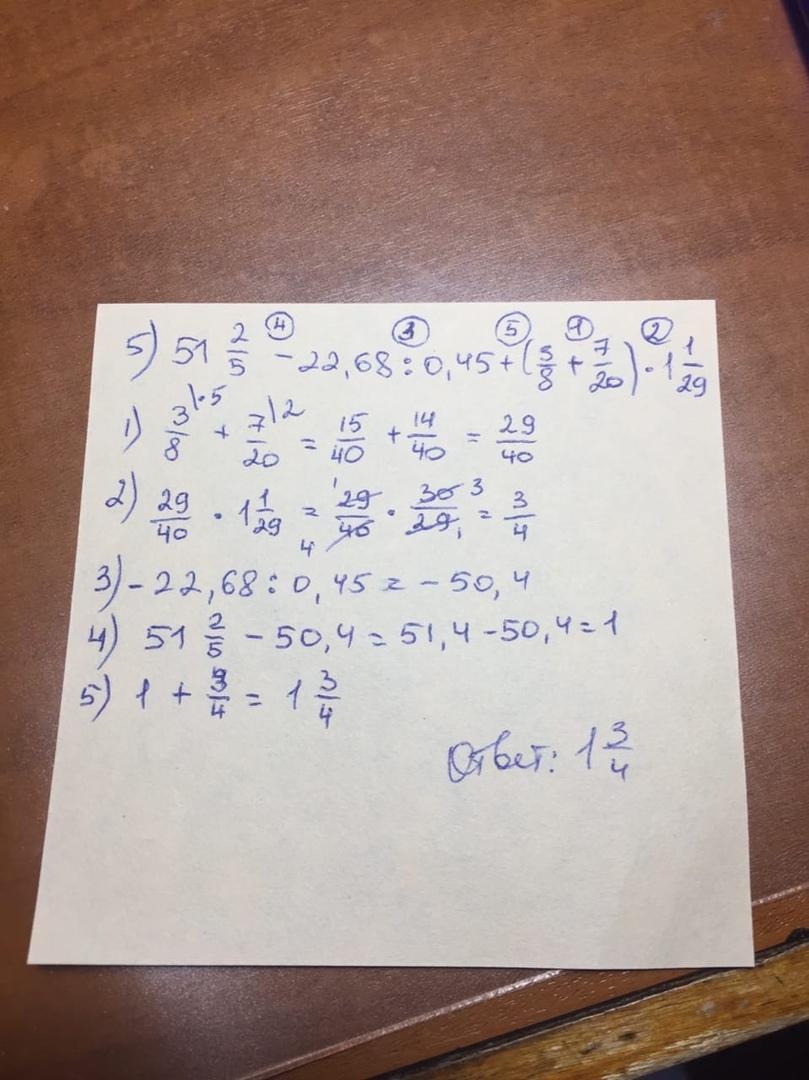 ④ ③ ⑤ ① ②
5) 51 2/5 - 22,68 : 0,45 + (3/8 + 7/20) · 1 1/29
1) 3/8 \·5 + 7/20 \2 = 15/40 + 14/40 = 29/40
2) 29/40 · 1 1/29 = 29/40 · 30/29 = 3/4
3) - 22,68 : 0,45 = - 50,4
4) 51 2/5 - 50,4 = 51,4 - 50,4 = 1
5) 1 + 3/4 = 1 3/4
Ответ: 1 3/4